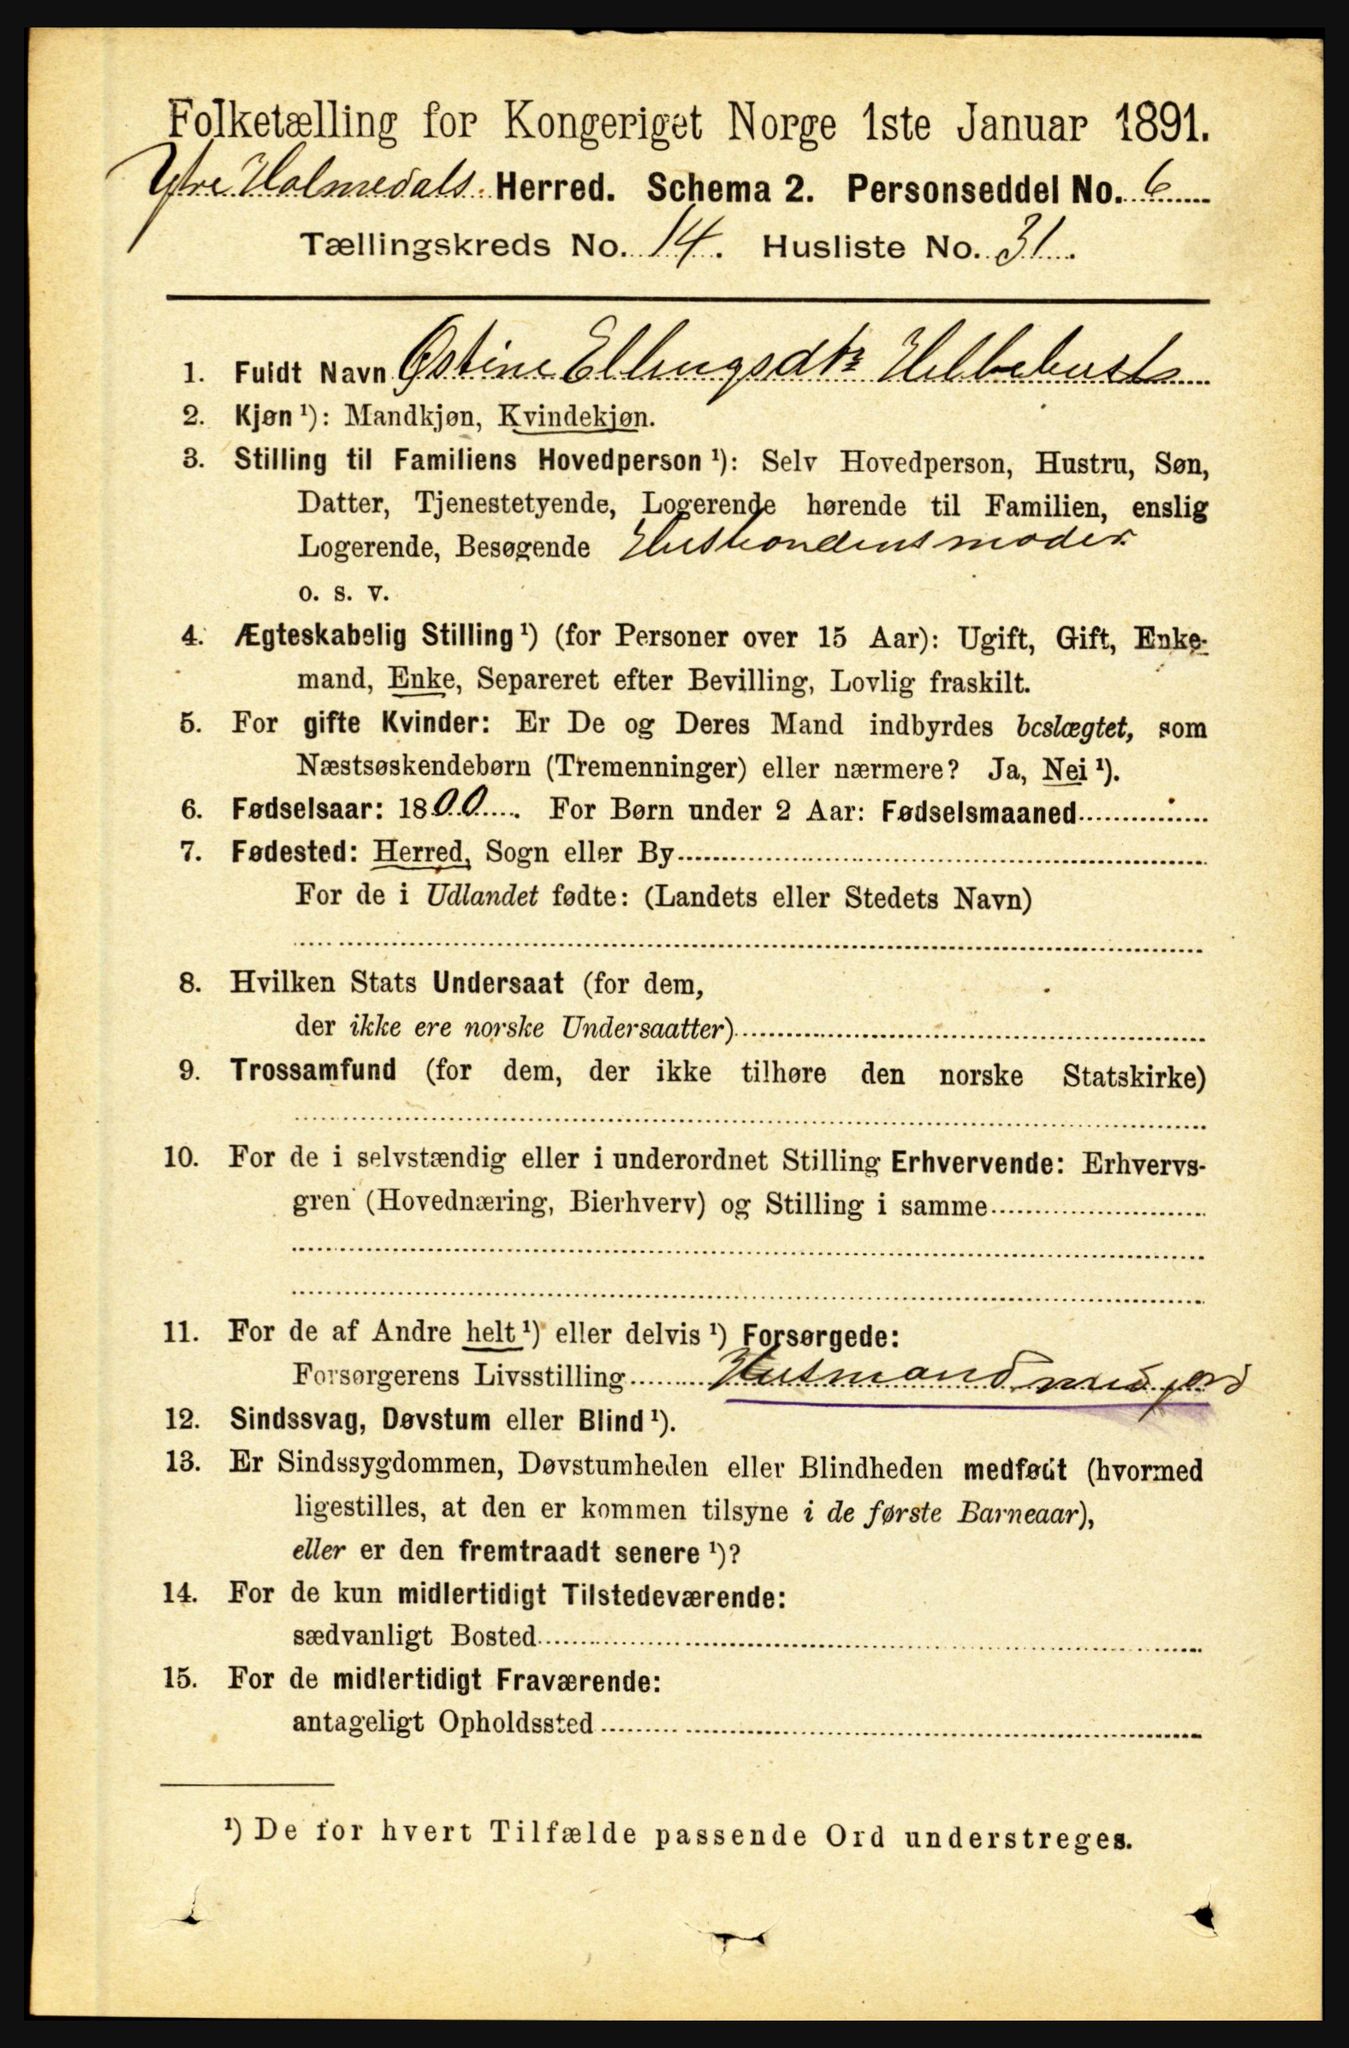 Folketælling for Kongeriget Norge 1ste Januar 1891.
Ytre Holmedals Herred. Schema 2. Personseddel No. 6
Tællingskreds No. 14. Husliste No. 31.
1. Fuldt Navn Østine Ellingsdtr Hellebust
2. Kjøn ¹): Mandkjøn, Kvindekjøn.
3. Stilling til Familiens Hovedperson ¹): Selv Hovedperson, Hustru, Søn,
Datter, Tjenestetyende, Logerende hørende til Familien, enslig
Logerende, Besøgende Husbondens moder
o. s. v.
4. Ægteskabelig Stilling ¹) (for Personer over 15 Aar): Ugift, Gift, Enke-
mand, Enke, Separeret efter Bevilling, Lovlig fraskilt.
5. For gifte Kvinder: Er De og Deres Mand indbyrdes beslægtet, som
Næstsøskendebørn (Tremenninger) eller nærmere? Ja, Nei ¹).
6. Fødselsaar: 1800. For Børn under 2 Aar: Fødselsmaaned
7. Fødested: Herred, Sogn eller By
For de i Udlandet fødte: (Landets eller Stedets Navn)
8. Hvilken Stats Undersaat (for dem,
der ikke ere norske Undersaatter)
9. Trossamfund (for dem, der ikke tilhøre den norske Statskirke)
10. For de i selvstændig eller i underordnet Stilling Erhvervende: Erhvervs-
gren (Hovednæring, Bierhverv) og Stilling i samme
11. For de af Andre helt ¹) eller delvis ¹) Forsørgede:
Forsørgerens Livsstilling Husmand med jord
12. Sindssvag, Døvstum eller Blind ¹).
13. Er Sindssygdommen, Døvstumheden eller Blindheden medfødt (hvormed
ligestilles, at den er kommen tilsyne i de første Barneaar),
eller er den fremtraadt senere ¹)?
14. For de kun midlertidigt Tilstedeværende:
sædvanligt Bosted
15. For de midlertidigt Fraværende:
antageligt Opholdssted
¹) De for hvert Tilfælde passende Ord understreges.